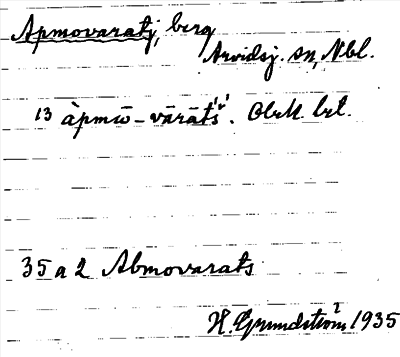 Apmovaratj, berg
Arvidsj. sn, Nbl.
13 àpmω̄-vārāt́ś.
35 a 2 Abmovarats
H. Grundström 1935